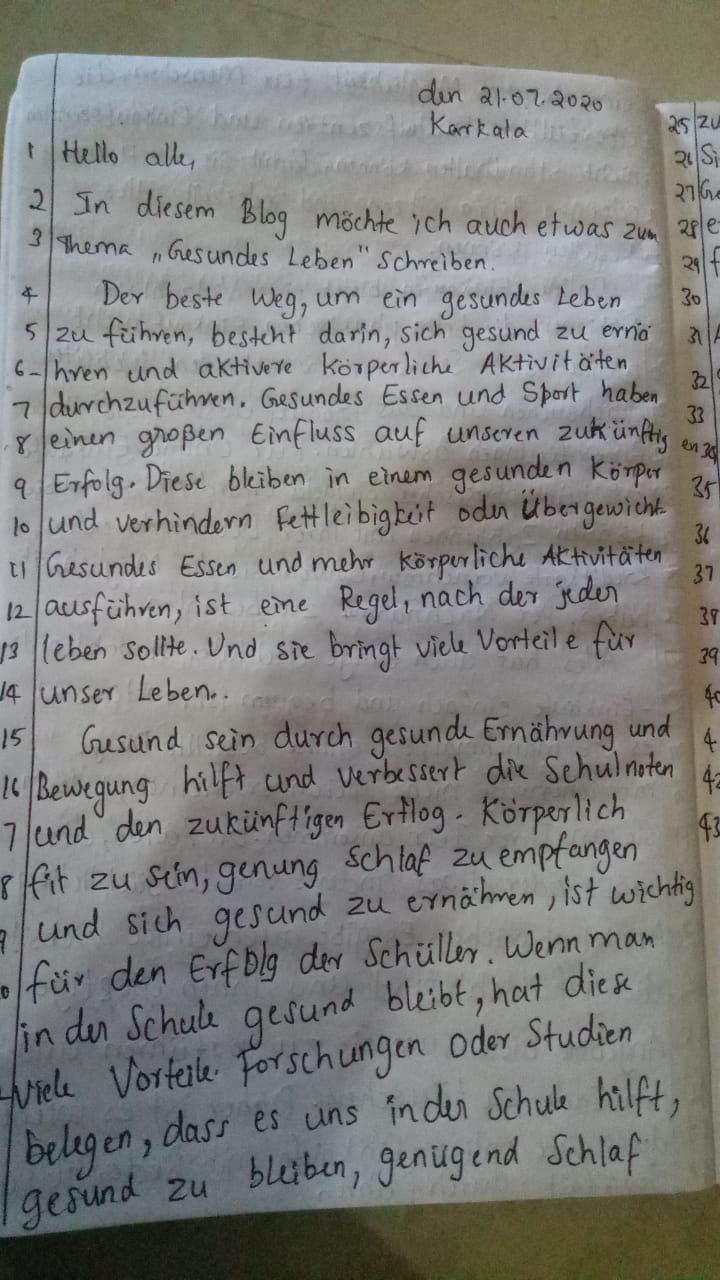 den 21.07.2020
Karkala
1 Hello alle,
2 In diesem Blog möchte ich auch etwas zum
3 Thema „Gesundes Leben" schreiben.
4 Der beste Weg, um ein gesundes Leben
5 zu führen, besteht darin, sich gesund zu ernä
6- hren und aktivere körperliche Aktivitäten
7 durchzuführen. Gesundes Essen und Sport haben
8 einen großen Einfluss auf unseren zukünftig en
9 Erfolg. Diese bleiben in einem gesunden Körper
10 und verhindern Fettleibigkeit oder Übergewicht
11 Gesundes Essen und mehr körperliche Aktivitäten
12 ausführen, ist eine Regel, nach der jeder
13 leben sollte. Und sie bringt viele Vorteile für
14 unser Leben..
15 Gesund sein durch gesunde Ernährung und
16 Bewegung hilft und verbessert die Schulnoten
7 und den zukünftigen Erflog. Körperlich
8 fit zu sein, genung schlaf zu empfangen
9 und sich gesund zu ernähren, ist wichtig
0 für den Erfolg der Schüller. Wenn man
in der Schule gesund bleibt, hat diese
viele Vorteile. Forschungen oder Studien
belegen, dass es uns in der Schule hilft,
gesund zu bleiben, genügend Schlaf
25 zu
26 Si
27 Ge
28 e
29 f
30
31 A
32
33
34
35
36
37
38
39
40
4
42
43